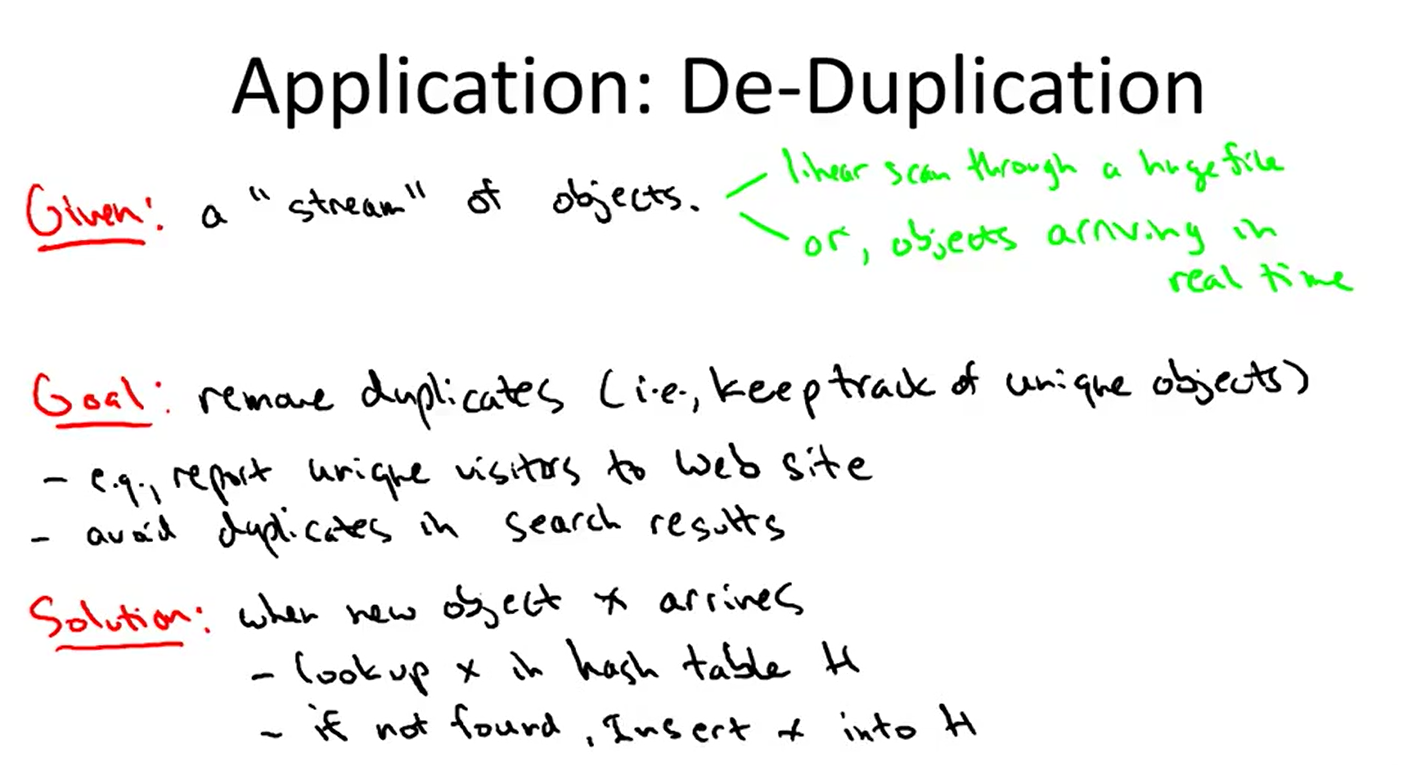 Application: De-Duplication
Given: a "stream" of objects.
linear scan through a huge file
or, objects arriving in
real time
Goal: remove duplicates (i.e., keep track of unique objects)
- e.g., report unique visitors to web site
- avoid duplicates in search results
Solution: when new object x arrives
- lookup x in hash table H
- if not found, Insert x into H